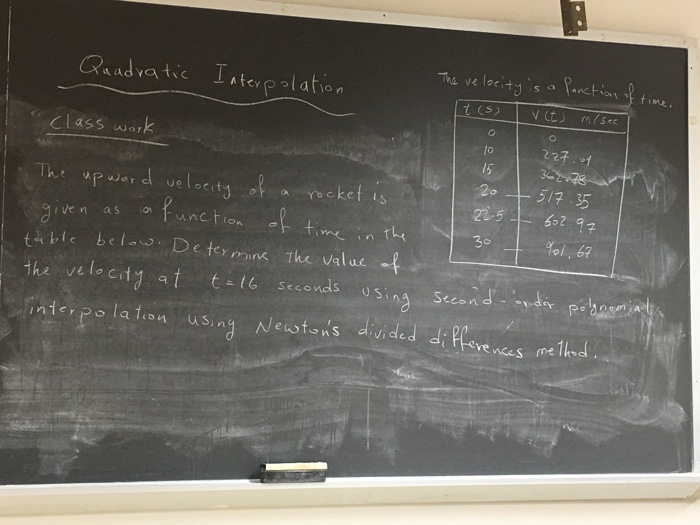 Quadratic Interpolation
Class work
The upward velocity of a rocket is
given as a function of time in the
table below. Determine the value of
the velocity at t=16 seconds using second-order polynomial
interpolation using Newton's divided differences method.
The velocity is a function of time.
t(s) V(t) m/sec
0 0
10 227.04
15 362.78
20 517.35
22.5 602.97
30 901.67